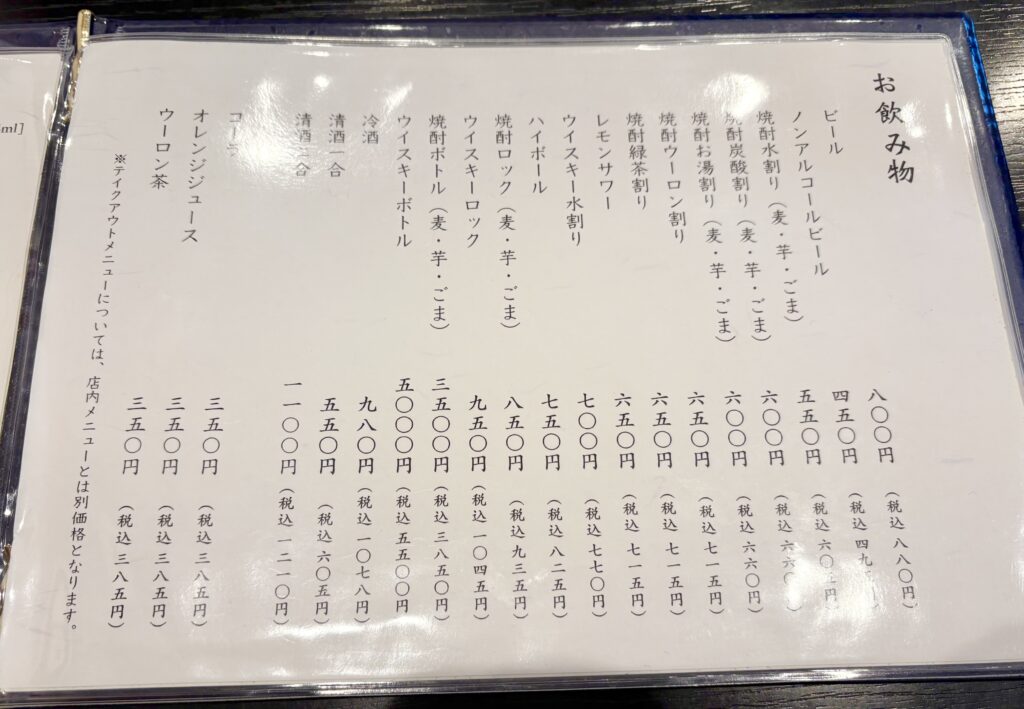 お飲み物
ビール 八〇〇円 （税込 八八〇円）
ノンアルコールビール 四五〇円 （税込
焼酎水割り（麦・芋・ごま） 五五〇円 （税込 六〇五円）
焼酎炭酸割り（麦・芋・ごま） 六〇〇円 （税込 六六〇
焼酎お湯割り（麦・芋・ごま） 六〇〇円 （税込 六六〇円）
焼酎ウーロン割り 六五〇円 （税込 七一五円）
焼酎緑茶割り 六五〇円 （税込 七一五円）
レモンサワー 六五〇円 （税込 七一五円）
ウイスキー水割り 七〇〇円 （税込 七七〇円）
ハイボール 七五〇円 （税込 八二五円）
焼酎ロック（麦・芋・ごま） 八五〇円 （税込 九三五円）
ウイスキーロック 九五〇円 （税込 一〇四五円）
焼酎ボトル（麦・芋・ごま） 三五〇〇円 （税込 三八五〇円）
ウイスキーボトル 五〇〇〇円 （税込 五五〇〇円）
冷酒 九八〇円 （税込 一〇七八円）
清酒一合 五五〇円 （税込 六〇五円）
清酒二合 一一〇〇円 （税込 一二一〇円）
コーラ 三五〇円 （税込 三八五円）
オレンジジュース 三五〇円 （税込 三八五円）
ウーロン茶 三五〇円 （税込 三八五円）
※テイクアウトメニューについては、店内メニューとは別価格となります。
ml]